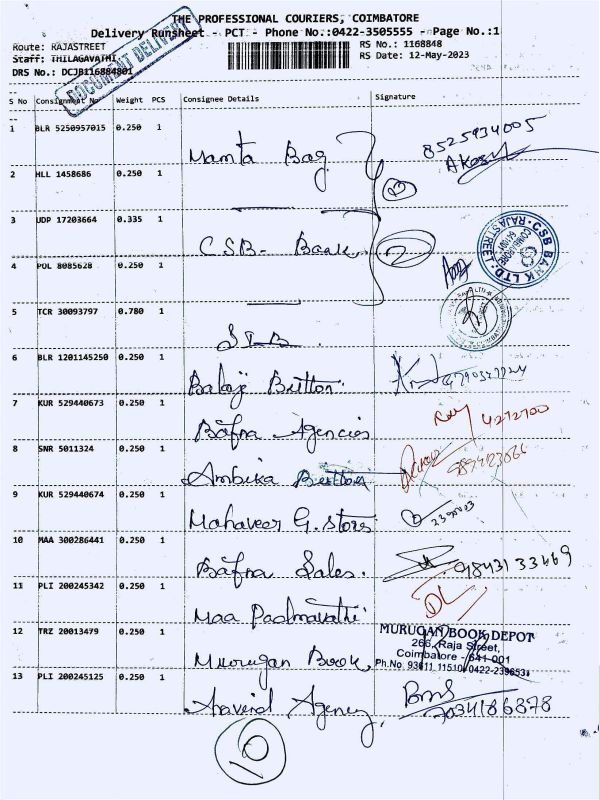 THE PROFESSIONAL COURIERS, COIMBATORE
Delivery Runsheet - PCT - Phone No.:0422-3505555 - Page No.:1
Route: RAJASTREET
RS No.: 1168848
Staff: THILAGAVATHI
RS Date: 12-May-2023
DRS No.: DCJB116884801
DOCUMENT DELIVERY
S No Consignment No Weight PCS Consignee Details Signature
1 BLR 5250957015 0.250 1 Mamta Bag 8525934005
Akash
2 HLL 1458686 0.250 1
2
3 UDP 17203664 0.335 1 CSB - Bank 2
CSB BANK LTD. RAJASTREET
COIMBATORE
4 POL 8085628 0.250 1
5 TCR 30093797 0.780 1
6 BLR 1201145250 0.250 1 Balaji Button
7 KUR 529440673 0.250 1 Bafna Agencies 4272700
8 SNR 5011324 0.250 1 Ambika Buttons
9 KUR 529440674 0.250 1 Mahaveer G. Stores
10 MAA 300286441 0.250 1 Bafna Sales. 9843133469
11 PLI 200245342 0.250 1 Maa Padmavathi
12 TRZ 20013479 0.250 1 Murugan Book
MURUGAN BOOK DEPOT
266, Raja Street,
Coimbatore - 641 001
Ph.No: 93611 11510, 0422-239653
13 PLI 200245125 0.250 1 Aravind Agency. 7034186878
10